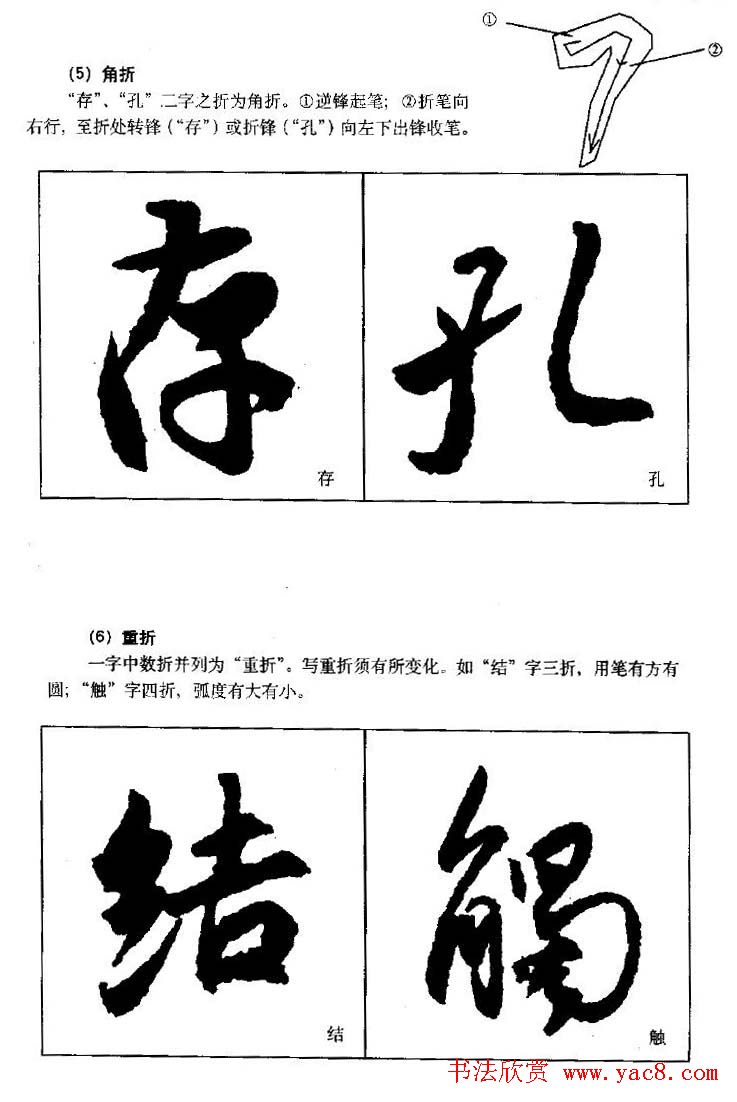 ①
②
(5) 角折
“存”、“孔”二字之折为角折。①逆锋起笔；②折笔向
右行，至折处转锋（“存”）或折锋（“孔”）向左下出锋收笔。
存 孔
存 孔
(6) 重折
一字中数折并列为“重折”。写重折须有所变化。如“结”字三折，用笔有方有
圆；“触”字四折，弧度有大有小。
结 觸
结 触
书法欣赏 www.yac8.com